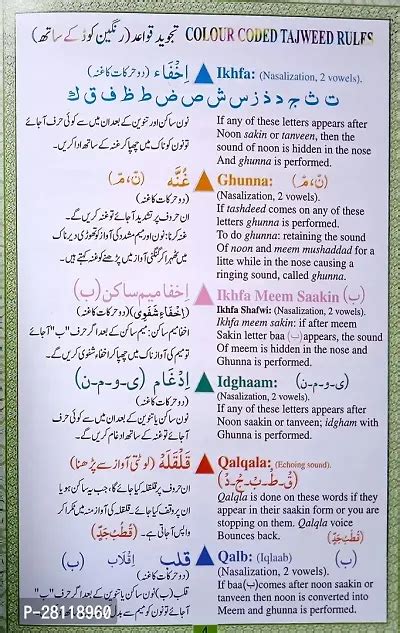 تجوید قواعد (رنگین کوڈ کے ساتھ) COLOUR CODED TAJWEED RULES
اِخْفَاء (دو حرکات کا غنہ) Ikhfa: (Nasalization, 2 vowels).
ت ث ج د ذ ز س ش ص ض ط ظ ف ق ك
If any of these letters appears after
Noon sakin or tanveen, then the
sound of noon is hidden in the nose
And ghunna is performed.
نون ساکن اور تنوین کے بعد ان میں سے کوئی حرف آجائے
تو نون کو ناک میں چھپا کر غنہ کے ساتھ ادا کریں۔
غُنَّه (نّ، مّ) Ghunna: (نّ، مّ)
(دو حرکات کا غنہ) (Nasalization, 2 vowels).
If tashdeed comes on any of these
letters ghunna is performed.
To do ghunna: retaining the sound
Of noon and meem mushaddad for a
litte while in the nose causing a
ringing sound, called ghunna.
ان حروف پر تشدید آجائے تو غنہ کریں گے۔
غنہ کرنا: نون اور میم مشدد کی آواز کو تھوڑی دیر ناک
میں ٹھہرا کر گنگنی آواز میں پڑھنے کو غنہ کہتے ہیں۔
اِخفا میم ساکن (ب) Ikhfa Meem Saakin (ب)
(دو حرکات کا غنہ) Ikhfa Shafwi: (Nasalization, 2 vowels).
(اِخْفَاء شَفَوِی)
Ikhfa meem sakin: if after meem
Sakin letter baa (ب) appears, the sound
Of meem is hidden in the nose and
Ghunna is performed.
اخفا میم ساکن: میم ساکن کے بعد اگر حرف "ب" آجائے
تو میم کی آواز ناک میں چھپا کر اخفاء شفوی کریں گے۔
اِدْغَام (ی-و-م-ن) Idghaam: (ی-و-م-ن)
(دو حرکات کا غنہ) (Nasalization, 2 vowels).
If any of these letters appears after
Noon saakin or tanveen; idgham with
Ghunna is performed.
نون ساکن یا تنوین کے بعد ان میں سے کوئی حرف
آجائے تو غنہ کے ساتھ ادغام کریں گے۔
قَلْقَلَهُ (لوٹتی آواز سے پڑھنا) Qalqala: (Echoing sound).
(قُ-طُ-بُ-جُ-دُ)
Qalqla is done on these words if they
appear in their saakin form or you are
stopping on them. Qalqla voice
Bounces back. (قُطْبُ جَدٍّ)
ان حروف پر قلقلہ کیا جائے گا، جب یہ ساکن ہو یا
ان پر وقف کیا جائے۔ قلقلہ کی آواز منہ میں ٹکرا کر
واپس آجاتی ہے۔ (قُطْبُ جَدٍّ)
قلب اِقْلَاب (ب) Qalb: (Iqlaab) (ب)
(دو حرکات کا غنہ) (Nasalization, 2 vowels).
If baa(ب)comes after noon saakin or
tanveen then noon is converted into
Meem and ghunna is performed.
قلب: نون ساکن یا تنوین کے بعد اگر حرف "ب"
آجائے تو نون کو میم سے بدل
P-28118960